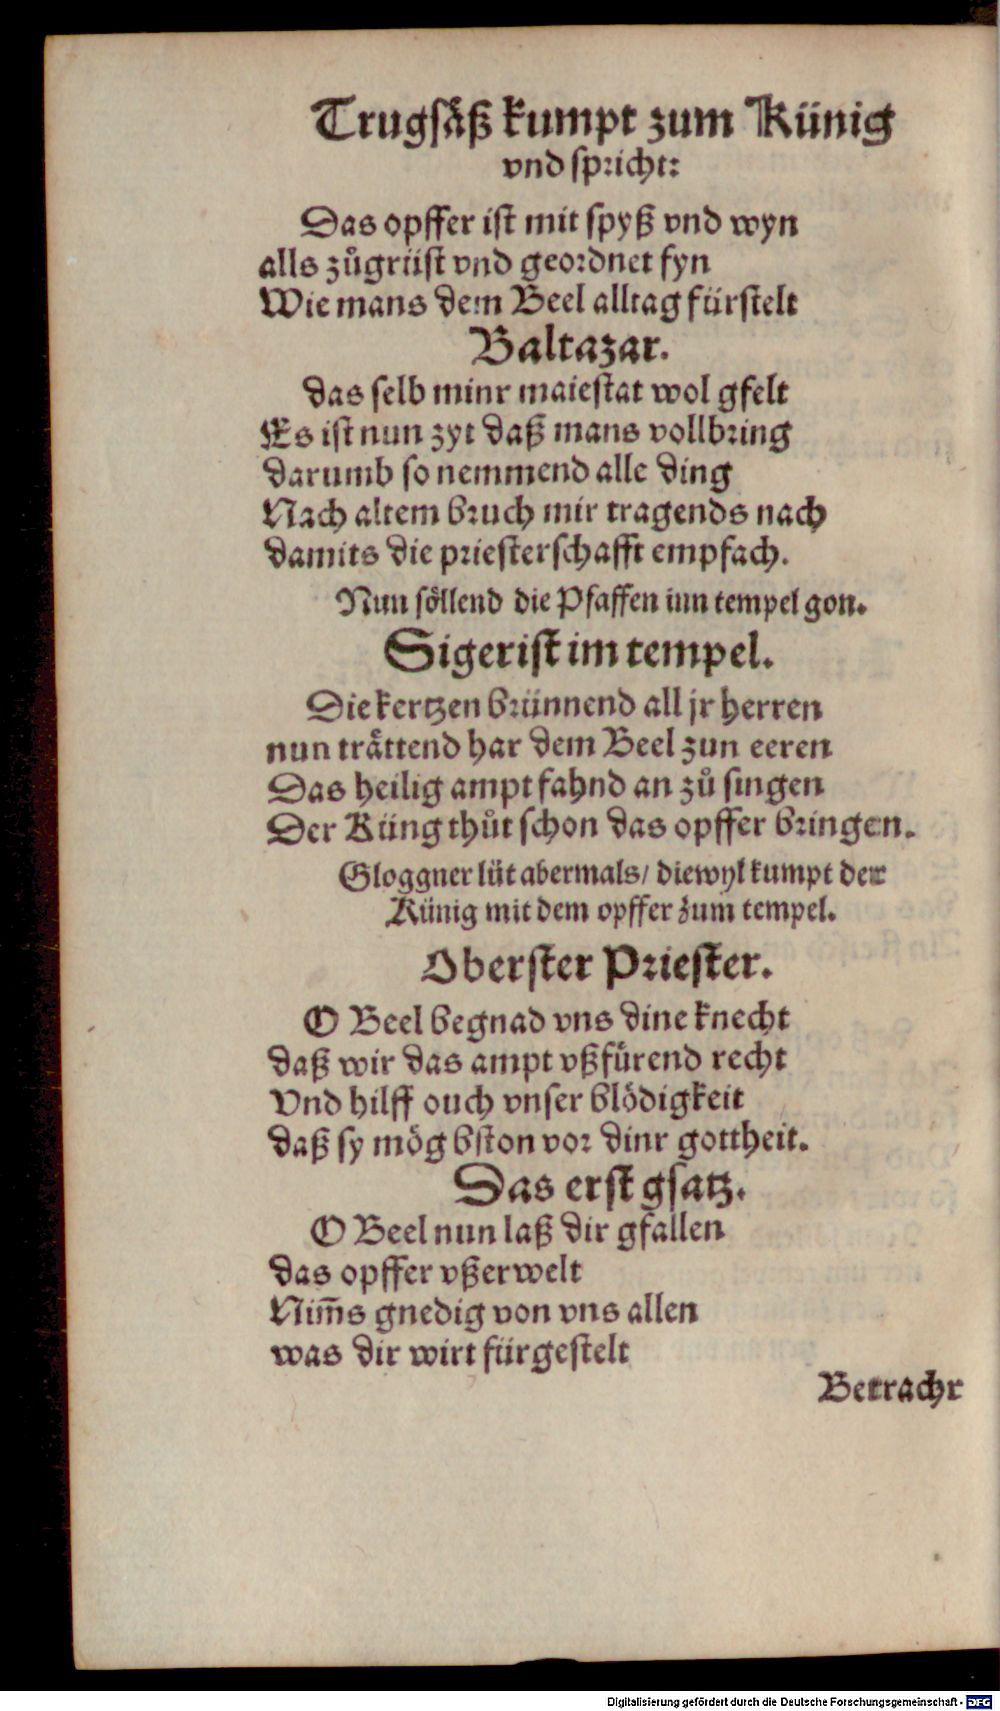 Trugsäß kumpt zum Künig
vnd spricht:
Das opffer ist mit spyß vnd wyn
alls zůgrüst vnd geordnet syn
Wie mans dem Beel alltag fürstelt
Baltazar.
das selb minr maiestat wol gfelt
Es ist nun zyt daß mans vollbring
darumb so nemmend alle ding
Nach altem bruch mir tragends nach
damits die priesterschafft empfach.
Nun söllend die Pfaffen inn tempel gon.
Sigerist im tempel.
Die kertzen brünnend all jr herren
nun trättend har dem Beel zun eeren
Das heilig ampt fahnd an zů singen
Der Küng thůt schon das opffer bringen.
Gloggner lüt abermals/ diewyl kumpt der
Künig mit dem opffer zum tempel.
Oberster Priester.
O Beel begnad vns dine knecht
daß wir das ampt vßfürend recht
Vnd hilff ouch vnser blödigkeit
daß sy mög bston vor dinr gottheit.
Das erst gsatz.
O Beel nun laß dir gfallen
das opffer vßerwelt
Nim̄s gnedig von vns allen
was dir wirt fürgestelt
Betracht
Digitalisierung gefördert durch die Deutsche Forschungsgemeinschaft - DFG